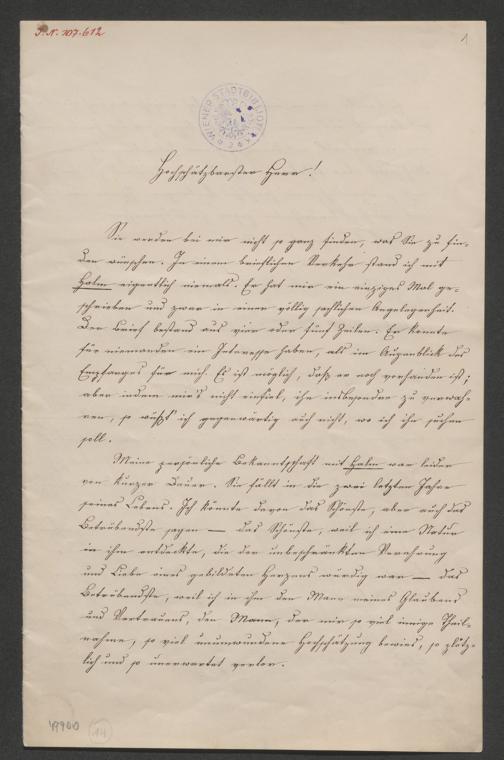 J. N. 107.612
1
WIENER STADTBIBLIOTHEK
Hochschätzbarster Herr!
Sie werden bei mir nicht so ganz finden, was Sie zu fin-
den wünschen. In einem brieflichen Verkehr stand ich mit
Halm eigentlich niemals. Er hat mir ein einziges Mal ge-
schrieben und zwar in einer völlig sachlichen Angelegenheit.
Der Brief bestand aus vier oder fünf Zeilen. Er konnte
für niemanden ein Interesse haben, als im Augenblick des
Empfanges für mich. Es ist möglich, daß er noch vorhanden ist;
aber indem mir's nicht einfiel, ihn insbesondre zu verwah-
ren, so wüßt' ich gegenwärtig auch nicht, wo ich ihn suchen
soll.
Meine persönliche Bekanntschaft mit Halm war leider
von kurzer Dauer. Sie fällt in die zwei letzten Jahre
seines Lebens. Ich könnte davon das Schönste, aber auch das
Betrübendste sagen — das Schönste, weil ich eine Natur
in ihm entdeckte, die der unbeschränkten Verehrung
und Liebe eines gebildeten Herzens würdig war — das
Betrübendste, weil ich in ihm den Mann meines Glaubens
und Vertrauens, den Mann, der mir so viel innige Theil-
nahme, so viel unumwundene Hochschätzung bewies, so plötz-
lich und so unerwartet verlor.
14